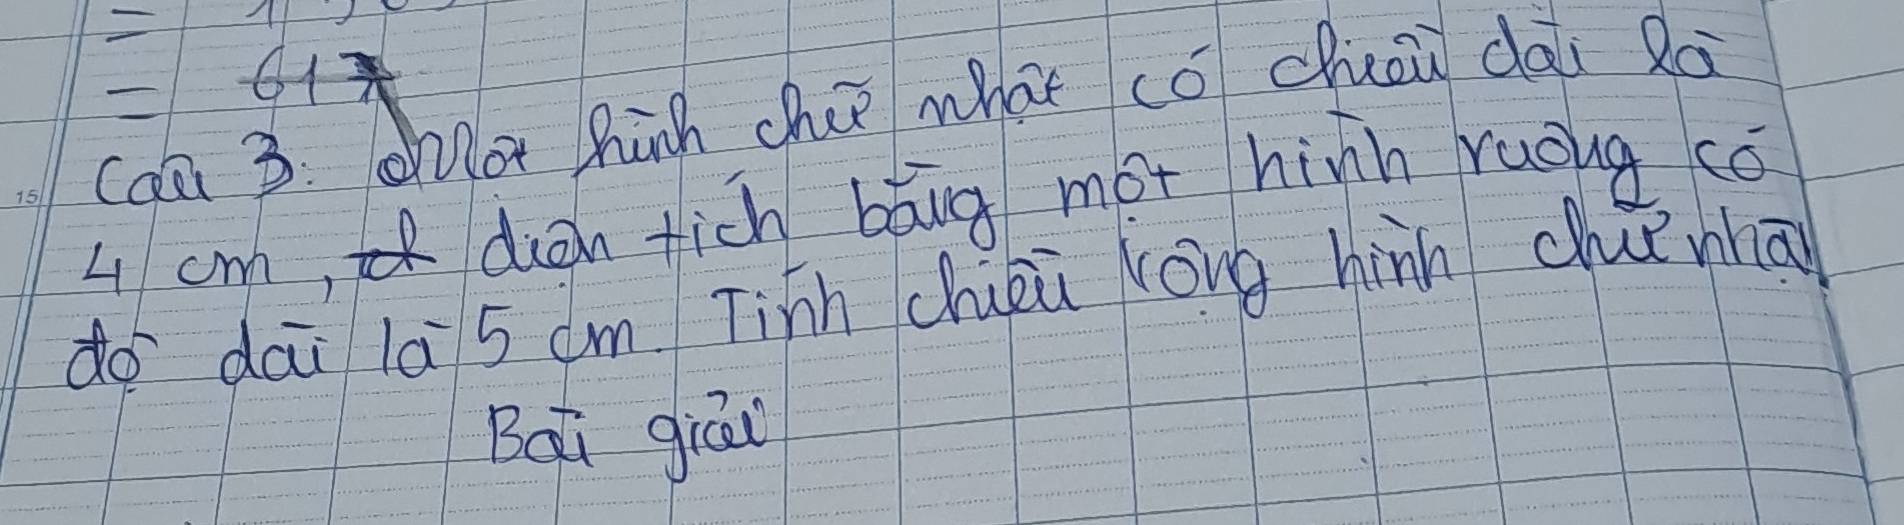 = 617
Câu 3: Một hình chữ nhật có chiều dài là
4 cm, diện tích bằng một hình vuông có
độ dài là 5 cm. Tính chiều rộng hình chữ nhật
Bài giải